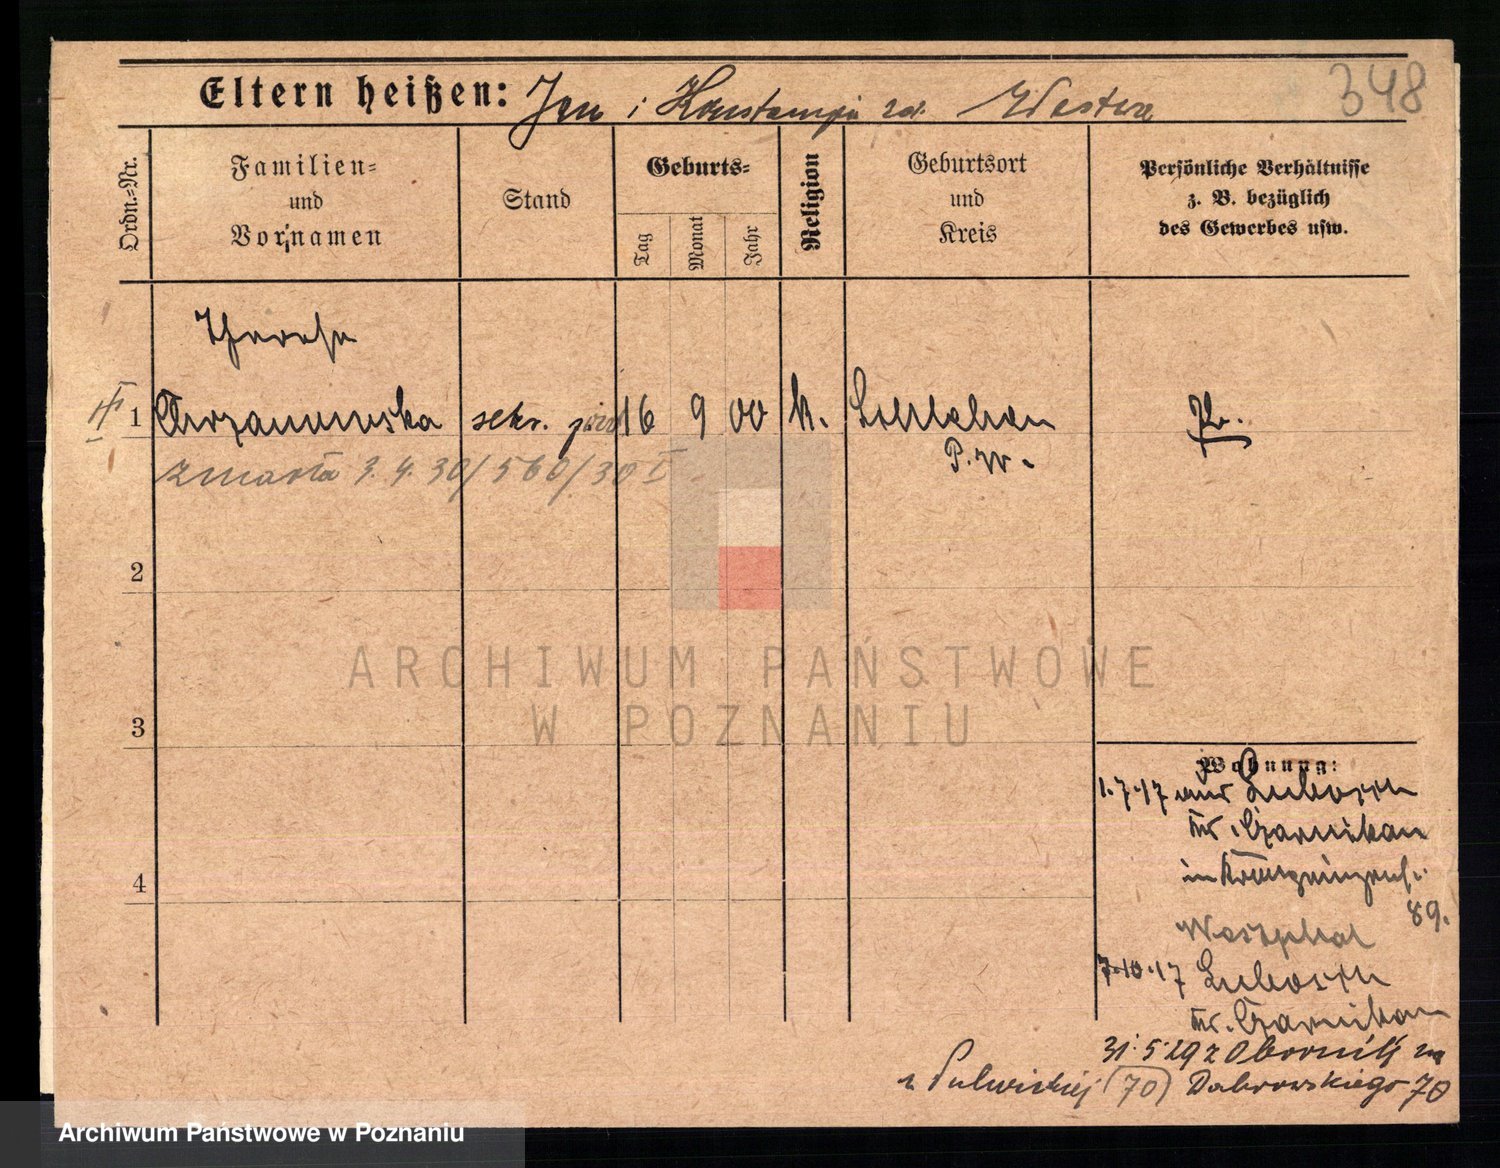 348
Eltern heißen: Jan i Konstancja zd. Westwa
Ordn.-Nr.
Familien-
und
Vornamen
Stand
Geburts-
Tag
Monat
Jahr
Religion
Geburtsort
und
Kreis
Persönliche Verhältnisse
z. B. bezüglich
des Gewerbes usw.
Therese
II 1 Chrzanowska sekr. 16 9 00 k. Pr.
P. W.
zmarła 3.4.30/560/30 I
2
3
4
Wohnung:
1.7.17 aus Lubosch
Kr. Czarnikau
89.
Westphal
7.10.17 Lubosch
Kr. Czarnikau
31.5.29 z Obornik na
(70) Dabrowskiego 70
ARCHIWUM PAŃSTWOWE
W POZNANIU
Archiwum Państwowe w Poznaniu